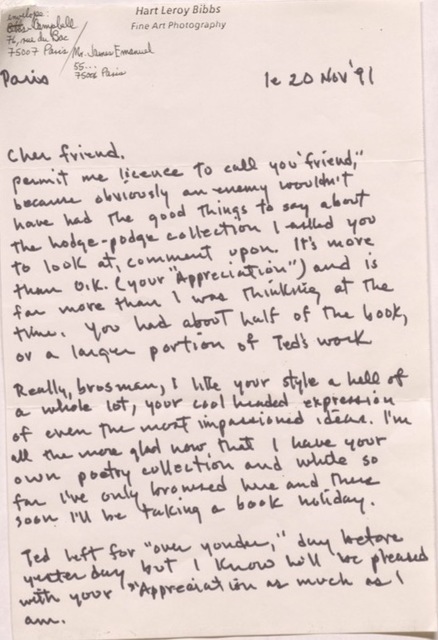 Hart Leroy Bibbs
Fine Art Photography
envelope:
Campbell
76, rue du Bac
75007 Paris
Mr. James Emanuel
55...
75006 Paris
Paris
le 20 Nov '91
Cher friend.
permit me licence to call you "friend,"
because obviously an enemy wouldn't
have had the good things to say about
the hodge-podge collection I asked you
to look at, comment upon. It's more
than O.K. (your "Appreciation") and is
far more than I was thinking at the
time. You had about half of the book,
or a larger portion of Ted's work
Really, brosman, I like your style a hell of
a whole lot, your cool headed expression
of even the most impassioned ideas. I'm
all the more glad now that I have your
own poetry collection and while so
far I've only browsed here and there
soon I'll be taking a book holiday.
Ted left for "over yonder," day before
yesterday but I know he'll be pleased
with your "Appreciation as much as I
am.